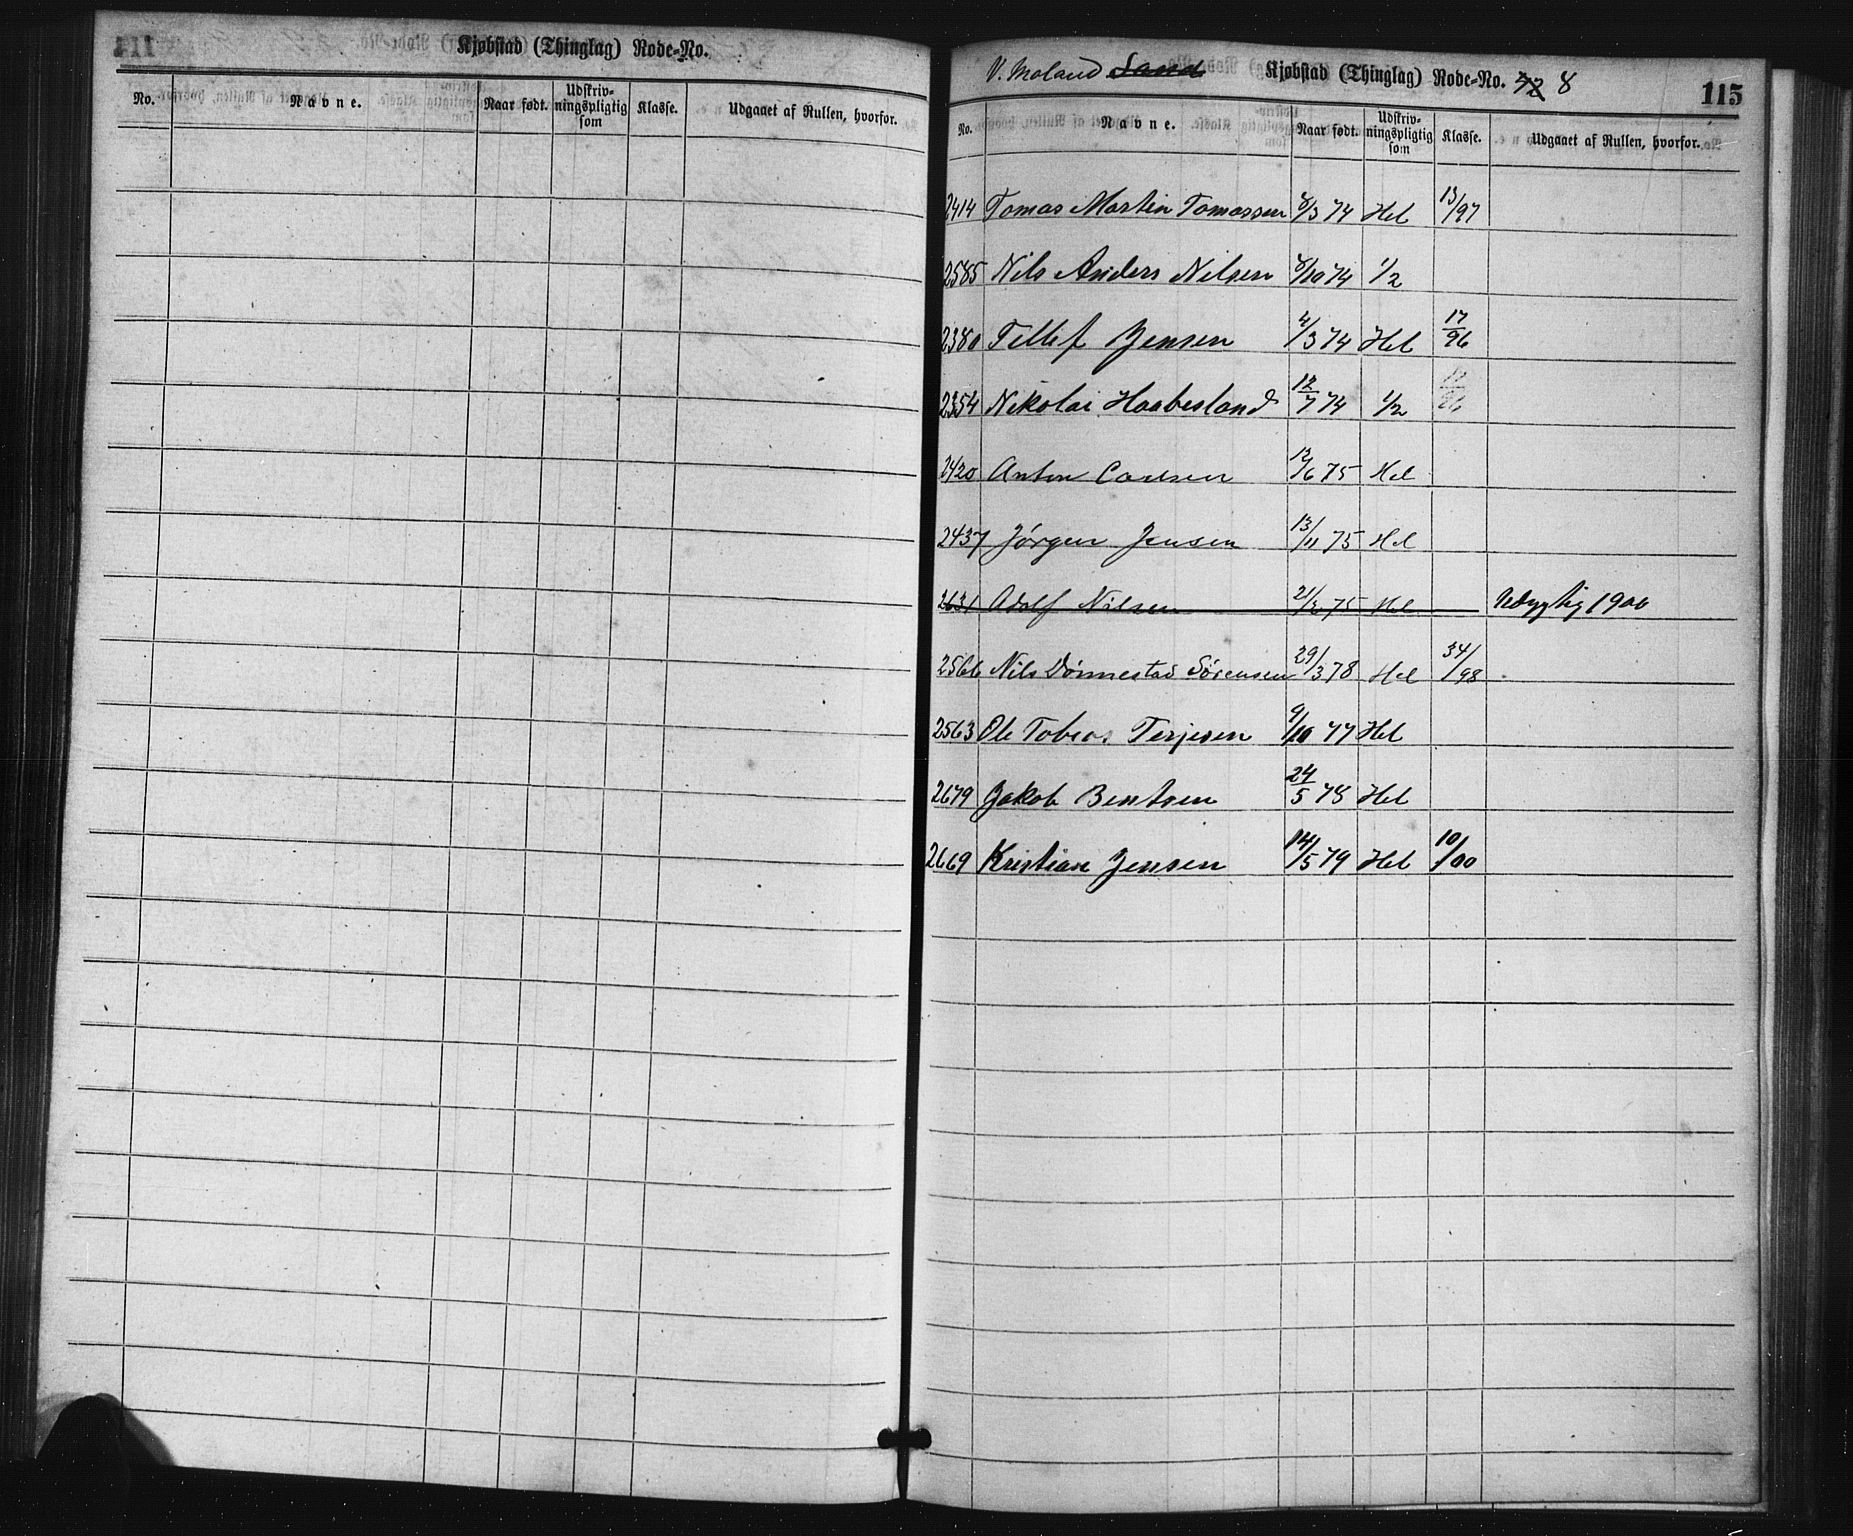 Kjøbstad (Thinglag) Rode-No.
No. Navne. Naar født. Udskrivningspligtig som Klasse. Udgaaet af Rullen, hvorfor.
V. Moland Sand Kjøbstad (Thinglag) Rode-No. 8
115
No. Navne. Naar født. Udskrivningspligtig som Klasse. Udgaaet af Rullen, hvorfor.
2414 Tomas Martin Tomassen 8/3 74 Hel 13/97
2585 Nils Anders Nilsen 8/10 74 1/2
2380 Tellef Jensen 4/3 74 Hel 17/96
2354 Nikolai Haabesland 12/7 74 1/2
2420 Anton Carlsen 12/6 75 Hel
2437 Jørgen Jensen 13/11 75 Hel
2631 Adolf Nilsen 75 Hel Udygtig 1906
2566 Nils Dønnestad Sørensen 29/3 78 Hel 34/98
2563 Ole Tobias Terjesen 9/10 77 Hel
2679 Jakob Bentsen 24/5 78 Hel
2669 Kristian Jensen 14/5 79 Hel 10/00